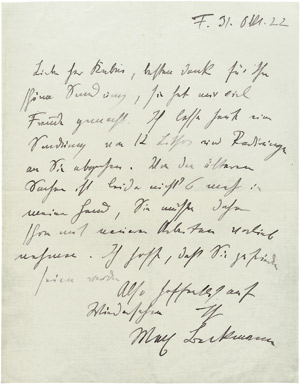 F. 31. Okt. 22
Lieber Herr Kubin, besten Dank für Ihre
schöne Sendung, sie hat mir viel
Freude gemacht. Ich lasse heute eine
Sendung von 12 Lithos und Radierungen
an Sie abgehen. Von den älteren
Sachen ist leider nichts mehr in
meiner Hand, Sie müssen daher
schon mit neueren Arbeiten vorlieb
nehmen. Ich hoffe, daß Sie zufrieden
sein werden.
Also hoffentlich auf
Wiedersehen Ihr
Max Beckmann